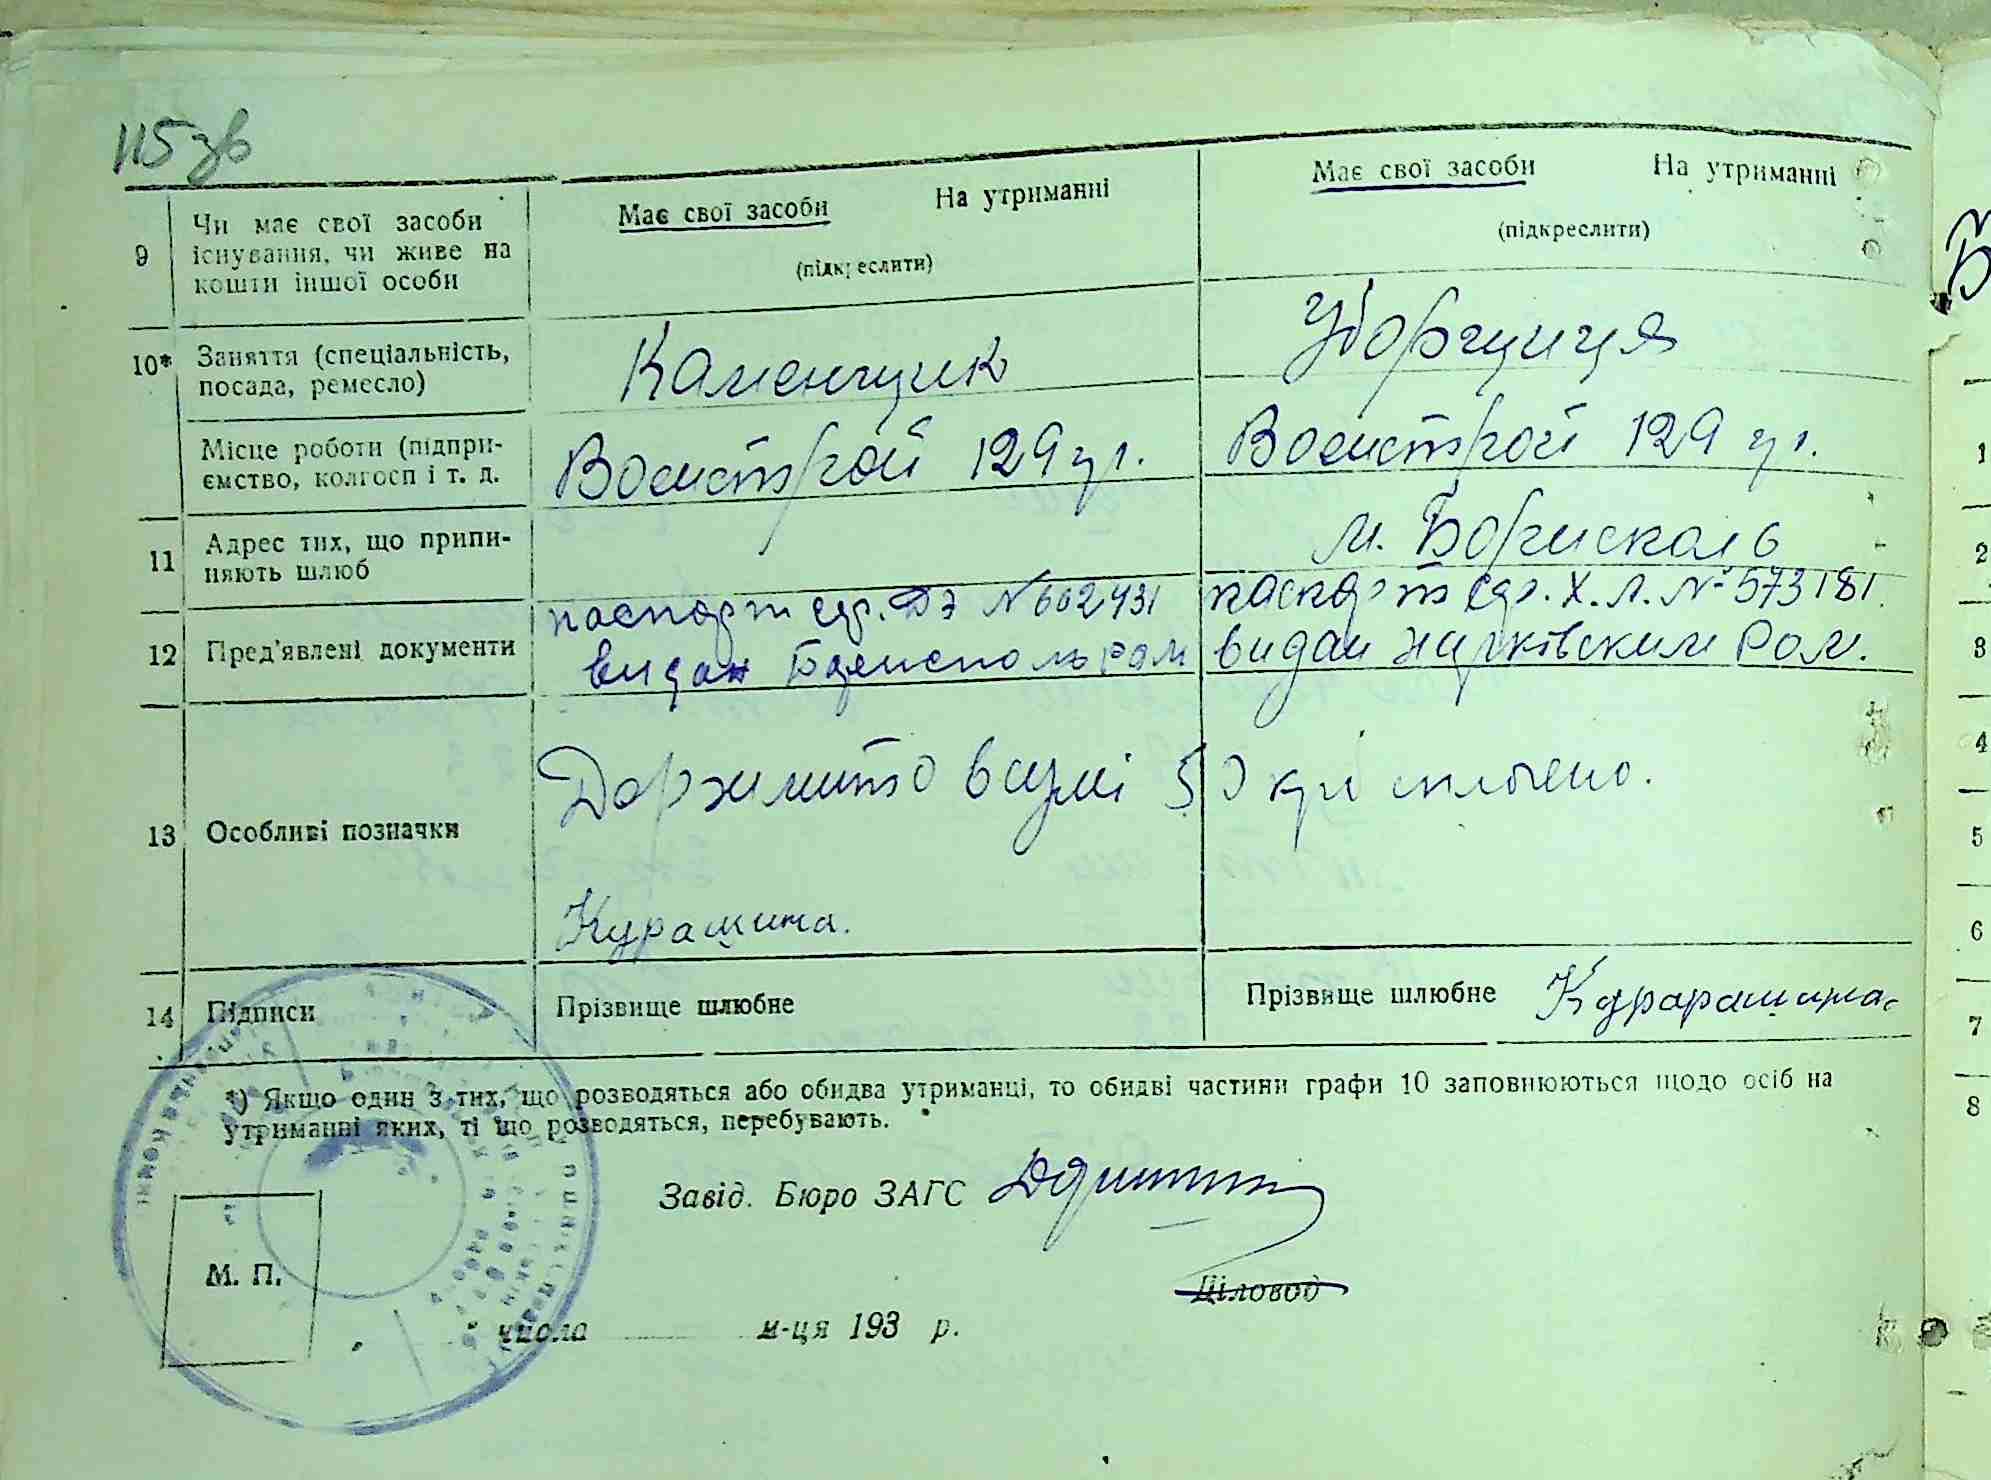 115 зв
9 Чи має свої засоби існування, чи живе на кошти іншої особи
Має свої засоби На утриманні
(підкреслити)
Має свої засоби На утриманні
(підкреслити)
10* Заняття (спеціальність, посада, ремесло)
Каменщик
Уборщиця
Місце роботи (підприємство, колгосп і т. д.
Воєнстрой 129 уч.
Воєнстрой 129 уч.
11 Адрес тих, що припиняють шлюб
м. Бориспаль
12 Пред'явлені документи
паспорт сер. ДЭ № 602431
видан
паспорт сер. Х.Л. № 573181.
видан Харківским Ром.
13 Особливі позначки
Держмито в сумі 50 крб сплочено.
Курамшина.
14 Підписи
Прізвище шлюбне
Прізвище шлюбне
*) Якщо один з тих, що розводяться або обидва утриманці, то обидві частини графи 10 заповнюються щодо осіб на
утриманні яких, ті що розводяться, перебувають.
Завід. Бюро ЗАГС
Діловод
М. П.
числа м-ця 193 р.
1
2
3
4
5
6
7
8